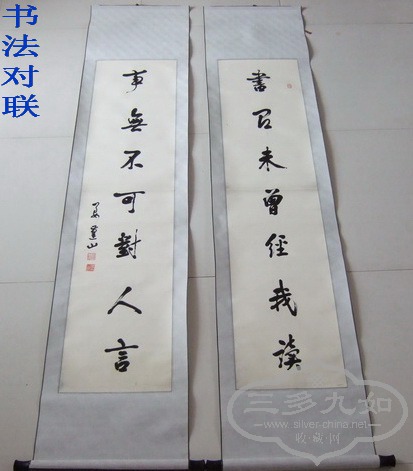 书法对联
書有未曾經我讀
事無不可對人言
三多九如
www.silver-china.net
收藏网